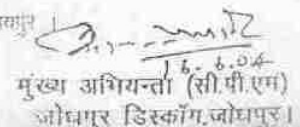 16.6.04
मुख्य अभियन्ता (सी.पी.एम)
जोधपुर डिस्कॉम,जोधपुर।